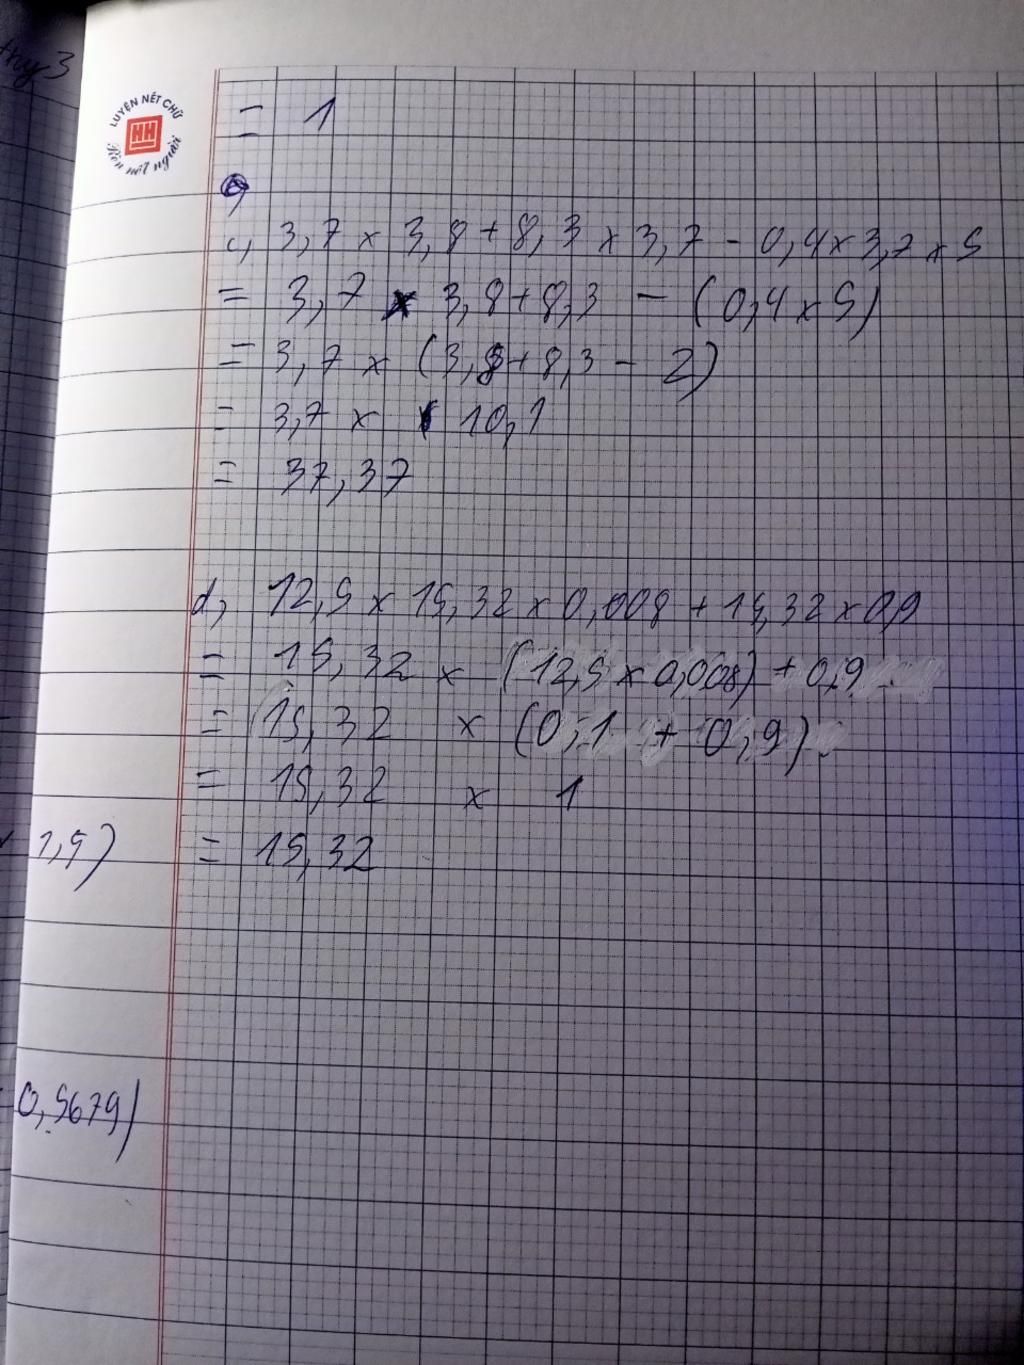 thy 3
LUYỆN NÉT CHỮ
HH
Rèn nết người
= 1
c, 3,7 x 3,8 + 8,3 x 3,7 - 0,4 x 3,7 x 5
= 3,7 x 3,8 + 8,3 - (0,4 x 5)
= 3,7 x (3,8 + 8,3 - 2)
= 3,7 x 10,1
= 37,37
d, 12,5 x 15,32 x 0,008 + 15,32 x 0,9
= 15,32 x (12,5 x 0,008) + 0,9
= 15,32 x (0,1 + 0,9)
= 15,32 x 1
1,5)
= 15,32
0,5679)